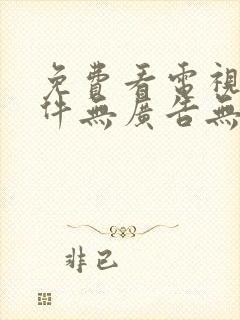 免費看電視
件無廣告無
非已